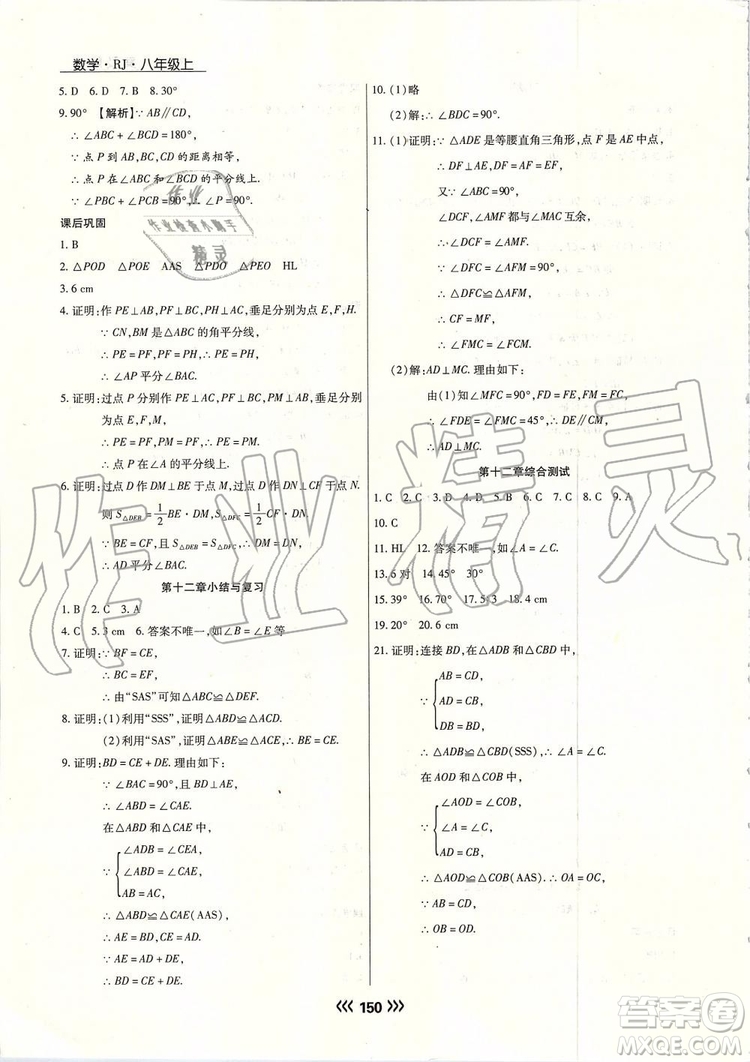 数学·RJ·八年级上
5. D  6. D  7. B  8. 30°
9. 90° 【解析】∵ AB∥CD,
∴ ∠ABC + ∠BCD = 180°,
∵ 点 P 到 AB,BC,CD 的距离相等,
∴ 点 P 在 ∠ABC 和 ∠BCD 的平分线上.
∴ ∠PBC + ∠PCB = 90°, ∴ ∠P = 90°.
课后巩固
1. B
2. △POD  △POE  AAS  △PDO  △PEO  HL
3. 6 cm
4. 证明:作 PE⊥AB,PF⊥BC,PH⊥AC,垂足分别为点 E,F,H.
∵ CN,BM 是△ABC 的角平分线,
∴ PE = PF,PF = PH, ∴ PE = PH,
∴ ∠AP 平分∠BAC.
5. 证明:过点 P 分别作 PE⊥AB,PF⊥BC,PM⊥AC,垂足分别为点 E,F,M,
∴ PE = PF,PF = PM, ∴ PE = PM,
∴ 点 P 在∠A 的平分线上.
6. 证明:过点 D 作 DM⊥BE 于点 M,DN⊥CF 于点 N.
则 S△DEB = 1/2 BE·DM,S△DFC = 1/2 CF·DN
∵ BE = CF, 且 S△DEB = S△DFC, ∴ DM = DN,
∴ AD 平分∠BAC.
第十二章小结与复习
1. B  2. C  3. A
4. C  5. 3 cm  6. 答案不唯一,如∠B = ∠E 等
7. 证明: ∵ BF = CE,
∴ BC = EF,
∴ 由“SAS”可知△ABC≌△DEF.
8. 证明:(1)利用“SSS”,证明△ABD≌△ACD.
(2)利用“SAS”,证明△ABE≌△ACE, ∴ BE = CE.
9. 证明:BD = CE + DE. 理由如下:
∵ ∠BAC = 90°,且 BD⊥AE,
∴ ∠ABD = ∠CAE.
在△ABD 和△CAE 中,
∠ADB = ∠CEA,
∵ ∠ABD = ∠CAE,
AB = AC,
∴ △ABD≌△CAE(AAS),
∴ AE = BD,AD = CE,
∵ AE = AD + DE,
∴ BD = CE + DE.
10. (1)略
(2)解: ∴ ∠BDC = 90°.
11. (1)证明: ∵ △ADE 是等腰直角三角形,点 F 是 AE 中点,
∴ DF⊥AE,DF = AF = EF,
又∵ ∠ABC = 90°,
∠DCF,∠AMF 都与∠MAC 互余,
∴ ∠DCF = ∠AMF.
又∵ ∠DFC = ∠AFM = 90°,
∴ △DFC≌△AFM,
∴ CF = MF,
∴ ∠FMC = ∠FCM.
(2)解:AD⊥MC. 理由如下:
由(1)知∠MFC = 90°,FD = FE,FM = FC,
∴ ∠FDE = ∠FMC = 45°, ∴ DE∥CM,
∴ AD⊥MC.
第十二章综合测试
1. C  2. C  3. D  4. D  5. B  6. C  7. B  8. C  9. A
10. C
11. HL  12. 答案不唯一,如∠C = ∠E
13. 6 对  14. 45°  30°
15. 39°  16. 70°  17. 5.3  18. 4 cm
19. 20°  20. 6 cm
21. 证明:连接 BD,在△ADB 和△CBD 中,
AB = CD,
∵ AD = CB,
BD = DB,
∴ △ADB≌△CBD(SSS), ∴ ∠A = ∠C.
在 AOD 和△COB 中,
∠AOD = ∠COB,
∵ ∠A = ∠C,
AD = CB,
∴ △AOD≌△COB(AAS). ∴ OA = OC,
∵ AB = CD,
∴ OB = OD.
《《 150 》》
作业
作业检查小帮手
精灵
作业精灵
答案圈
MXQE.COM